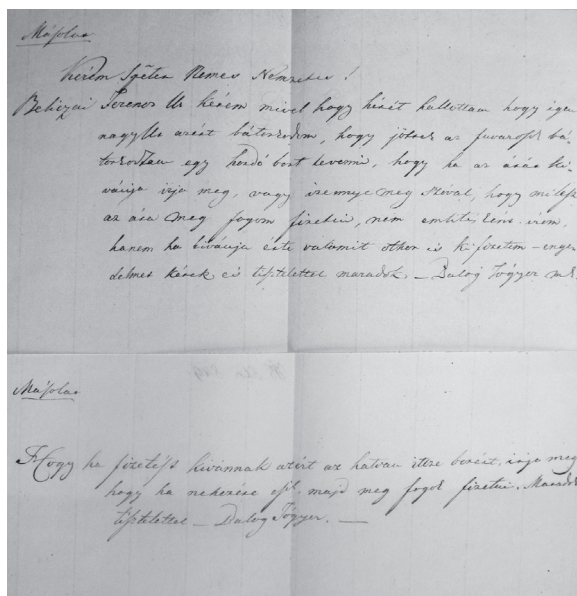 Másolat
Kérem Nemes Nemzetes!
Beliczai Ferencz Ur kérem mivel hogy hirét hallottam hogy igen
nagy azért bátorkodom, hogy az bá-
torkodtam egy hordó bort tevenni, hogy ha az árát ki-
vánja irja meg, vagy izennye meg szóval, hogy mi lesz
az ára meg fogom fizetni, nem
hanem ha kivánja érte valamit otkor is kifizetem – enge-
delmet kérek és tisztelettel maradok. – Dalog Győgyer
Másolat
Hogy ha fizetést kivánnak azért az hatvan itze borért, irja meg
hogy ha nehezére esik, majd meg fogok fizetni. Maradok
tisztelettel – Dalog Győgyer. –